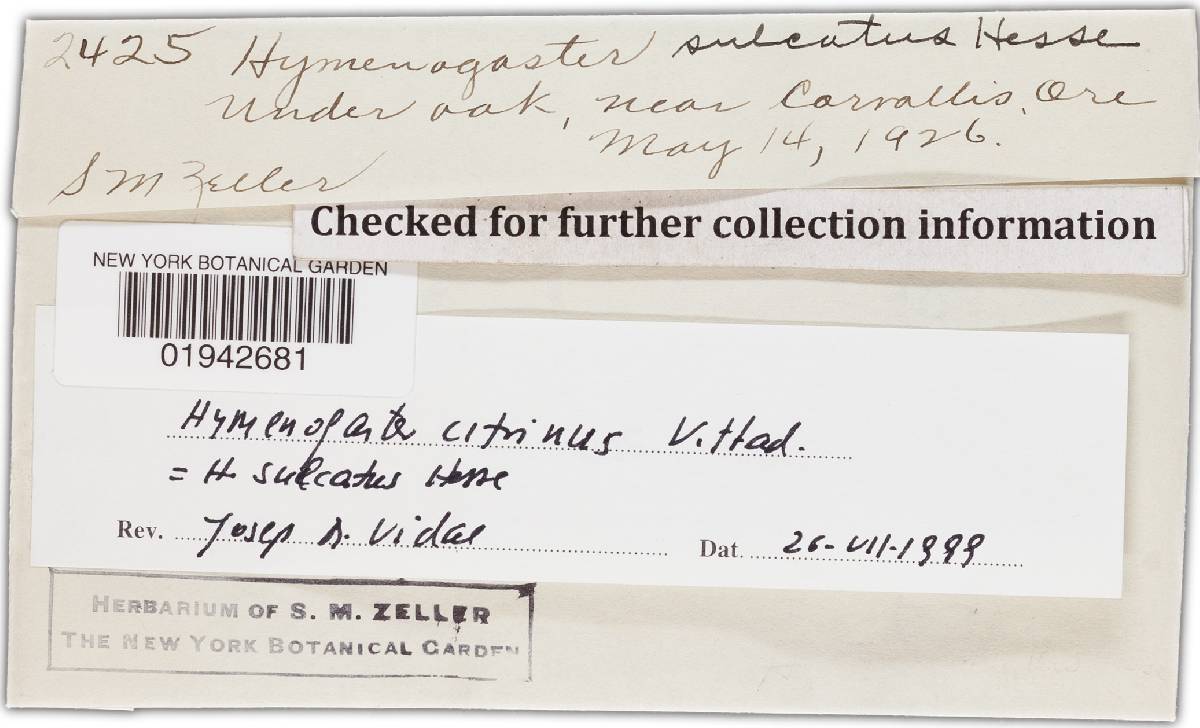 2425 Hymenogaster sulcatus Hesse
Under oak, near Corvallis, Ore
May 14, 1926.
S M Zeller
Checked for further collection information
NEW YORK BOTANICAL GARDEN
01942681
Hymenogaster citrinus Vittad.
= H. sulcatus Hesse
Rev. Josep M. Vidal
Dat. 26-VII-1999
HERBARIUM OF S. M. ZELLER
THE NEW YORK BOTANICAL GARDEN